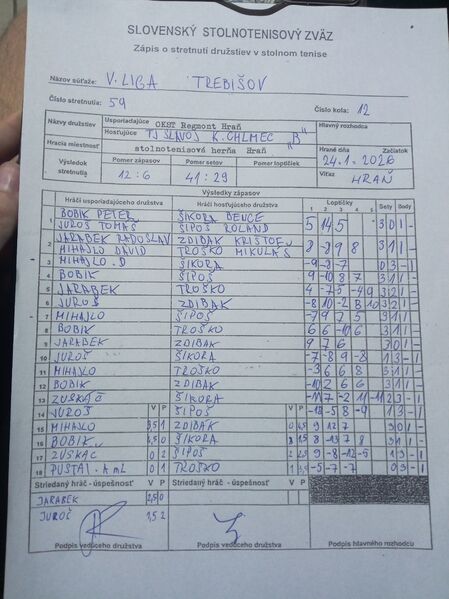 SLOVENSKÝ STOLNOTENISOVÝ ZVÄZ
Zápis o stretnutí družstiev v stolnom tenise
Názov súťaže: V. LIGA TREBIŠOV
Číslo stretnutia: 59 Číslo kola: 12
Názvy družstiev Usporiadajúce OKST Regmont Hraň Hlavný rozhodca
Hosťujúce TJ SLAVOJ K. CHLMEC "B"
Hracia miestnosť stolnotenisová herňa Hraň Hrané dňa Začiatok
24.1.2026
Výsledok stretnutia Pomer zápasov Pomer setov Pomer loptičiek Víťaz
12:6 41:29 HRAŇ
Výsledky zápasov
Hráči usporiadajúceho družstva Hráči hosťujúceho družstva Loptičky Sety Body
1 2 3 4 5
1 BOBIK PETER ŠIKORA BENCE 5 14 5 3 0 1 -
JUROŠ TOMÁŠ ŠIPOŠ ROLAND
2 JARABEK RADOSLAV ZDIBAK KRIŠTOF 8 -8 9 8 3 1 1 -
MIHAJLO DÁVID TROŠKO MIKULÁŠ
3 MIHAJLO.D ŠIKORA -9 -8 -7 0 3 - 1
4 BOBIK ŠIPOŠ 9 -10 8 7 3 1 1 -
5 JARABEK TROŠKO 4 -7 5 -4 9 3 2 1 -
6 JUROŠ ZDIBAK -8 10 -2 8 10 3 2 1 -
7 MIHAJLO ŠIPOŠ -7 9 7 5 3 1 1 -
8 BOBIK TROŠKO 6 6 -10 6 3 1 1 -
9 JARABEK ZDIBAK 9 7 6 3 0 1 -
10 JUROŠ ŠIKORA -7 -8 9 -8 1 3 - 1
11 MIHAJLO TROŠKO -3 6 6 8 3 1 1 -
12 BOBIK ZDIBAK -10 2 6 6 3 1 1 -
13 ZUSKÁČ ŠIKORA -11 7 -2 11 -11 2 3 - 1
14 JUROŠ V P ŠIPOŠ V P -13 -5 8 -9 1 3 - 1
15 MIHAJLO 3,5 1 ZDIBAK 9 12 7 3 0 1 -
16 BOBIK 4,5 0 ŠIKORA 8 -13 7 8 3 1 1 -
17 ZUSKÁČ 0 2 ŠIPOŠ 9 -8 -12 -5 1 3 - 1
18 PUSTAI 0 1 TROŠKO -5 -7 -7 0 3 - 1
Striedaný hráč - úspešnosť V P Striedaný hráč - úspešnosť V P
JARABEK 2,5 0
JUROŠ 1,5 2
Podpis vedúceho družstva Podpis vedúceho družstva Podpis hlavného rozhodcu